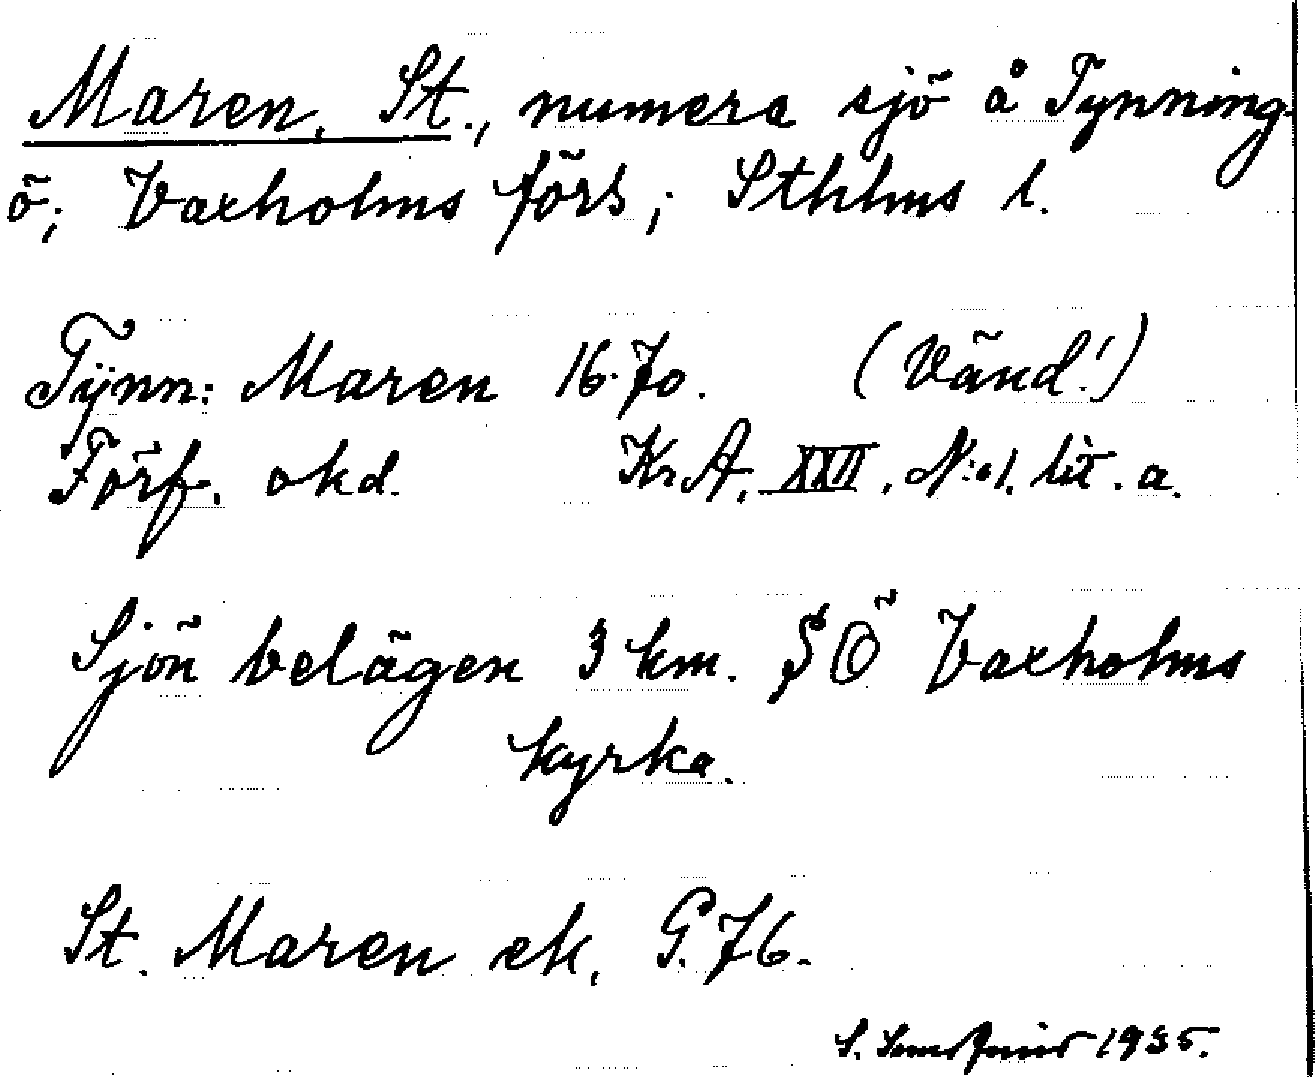 Maren, St., numera sjö å Tynning-
ö; Vaxholms förs; Sthlms l.
Tÿnn: Maren 1670. (Vänd!)
Förf. okd. Kr.A. XXVI, N:o 1. lit. a.
Sjön belägen 3 km. SÖ Vaxholms
kyrka.
St. Maren ek. G. 76.
S. 1935.